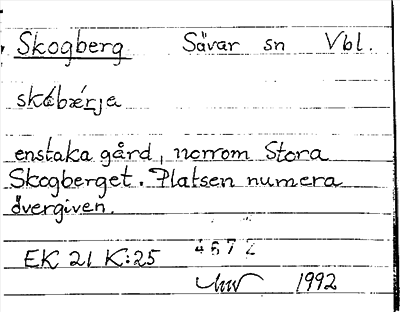 Skogberg Sävar sn Vbl.
skóbæ̀rja
enstaka gård, norrom Stora
Skogberget. Platsen numera
övergiven.
EK 21 K:25 4672
1992